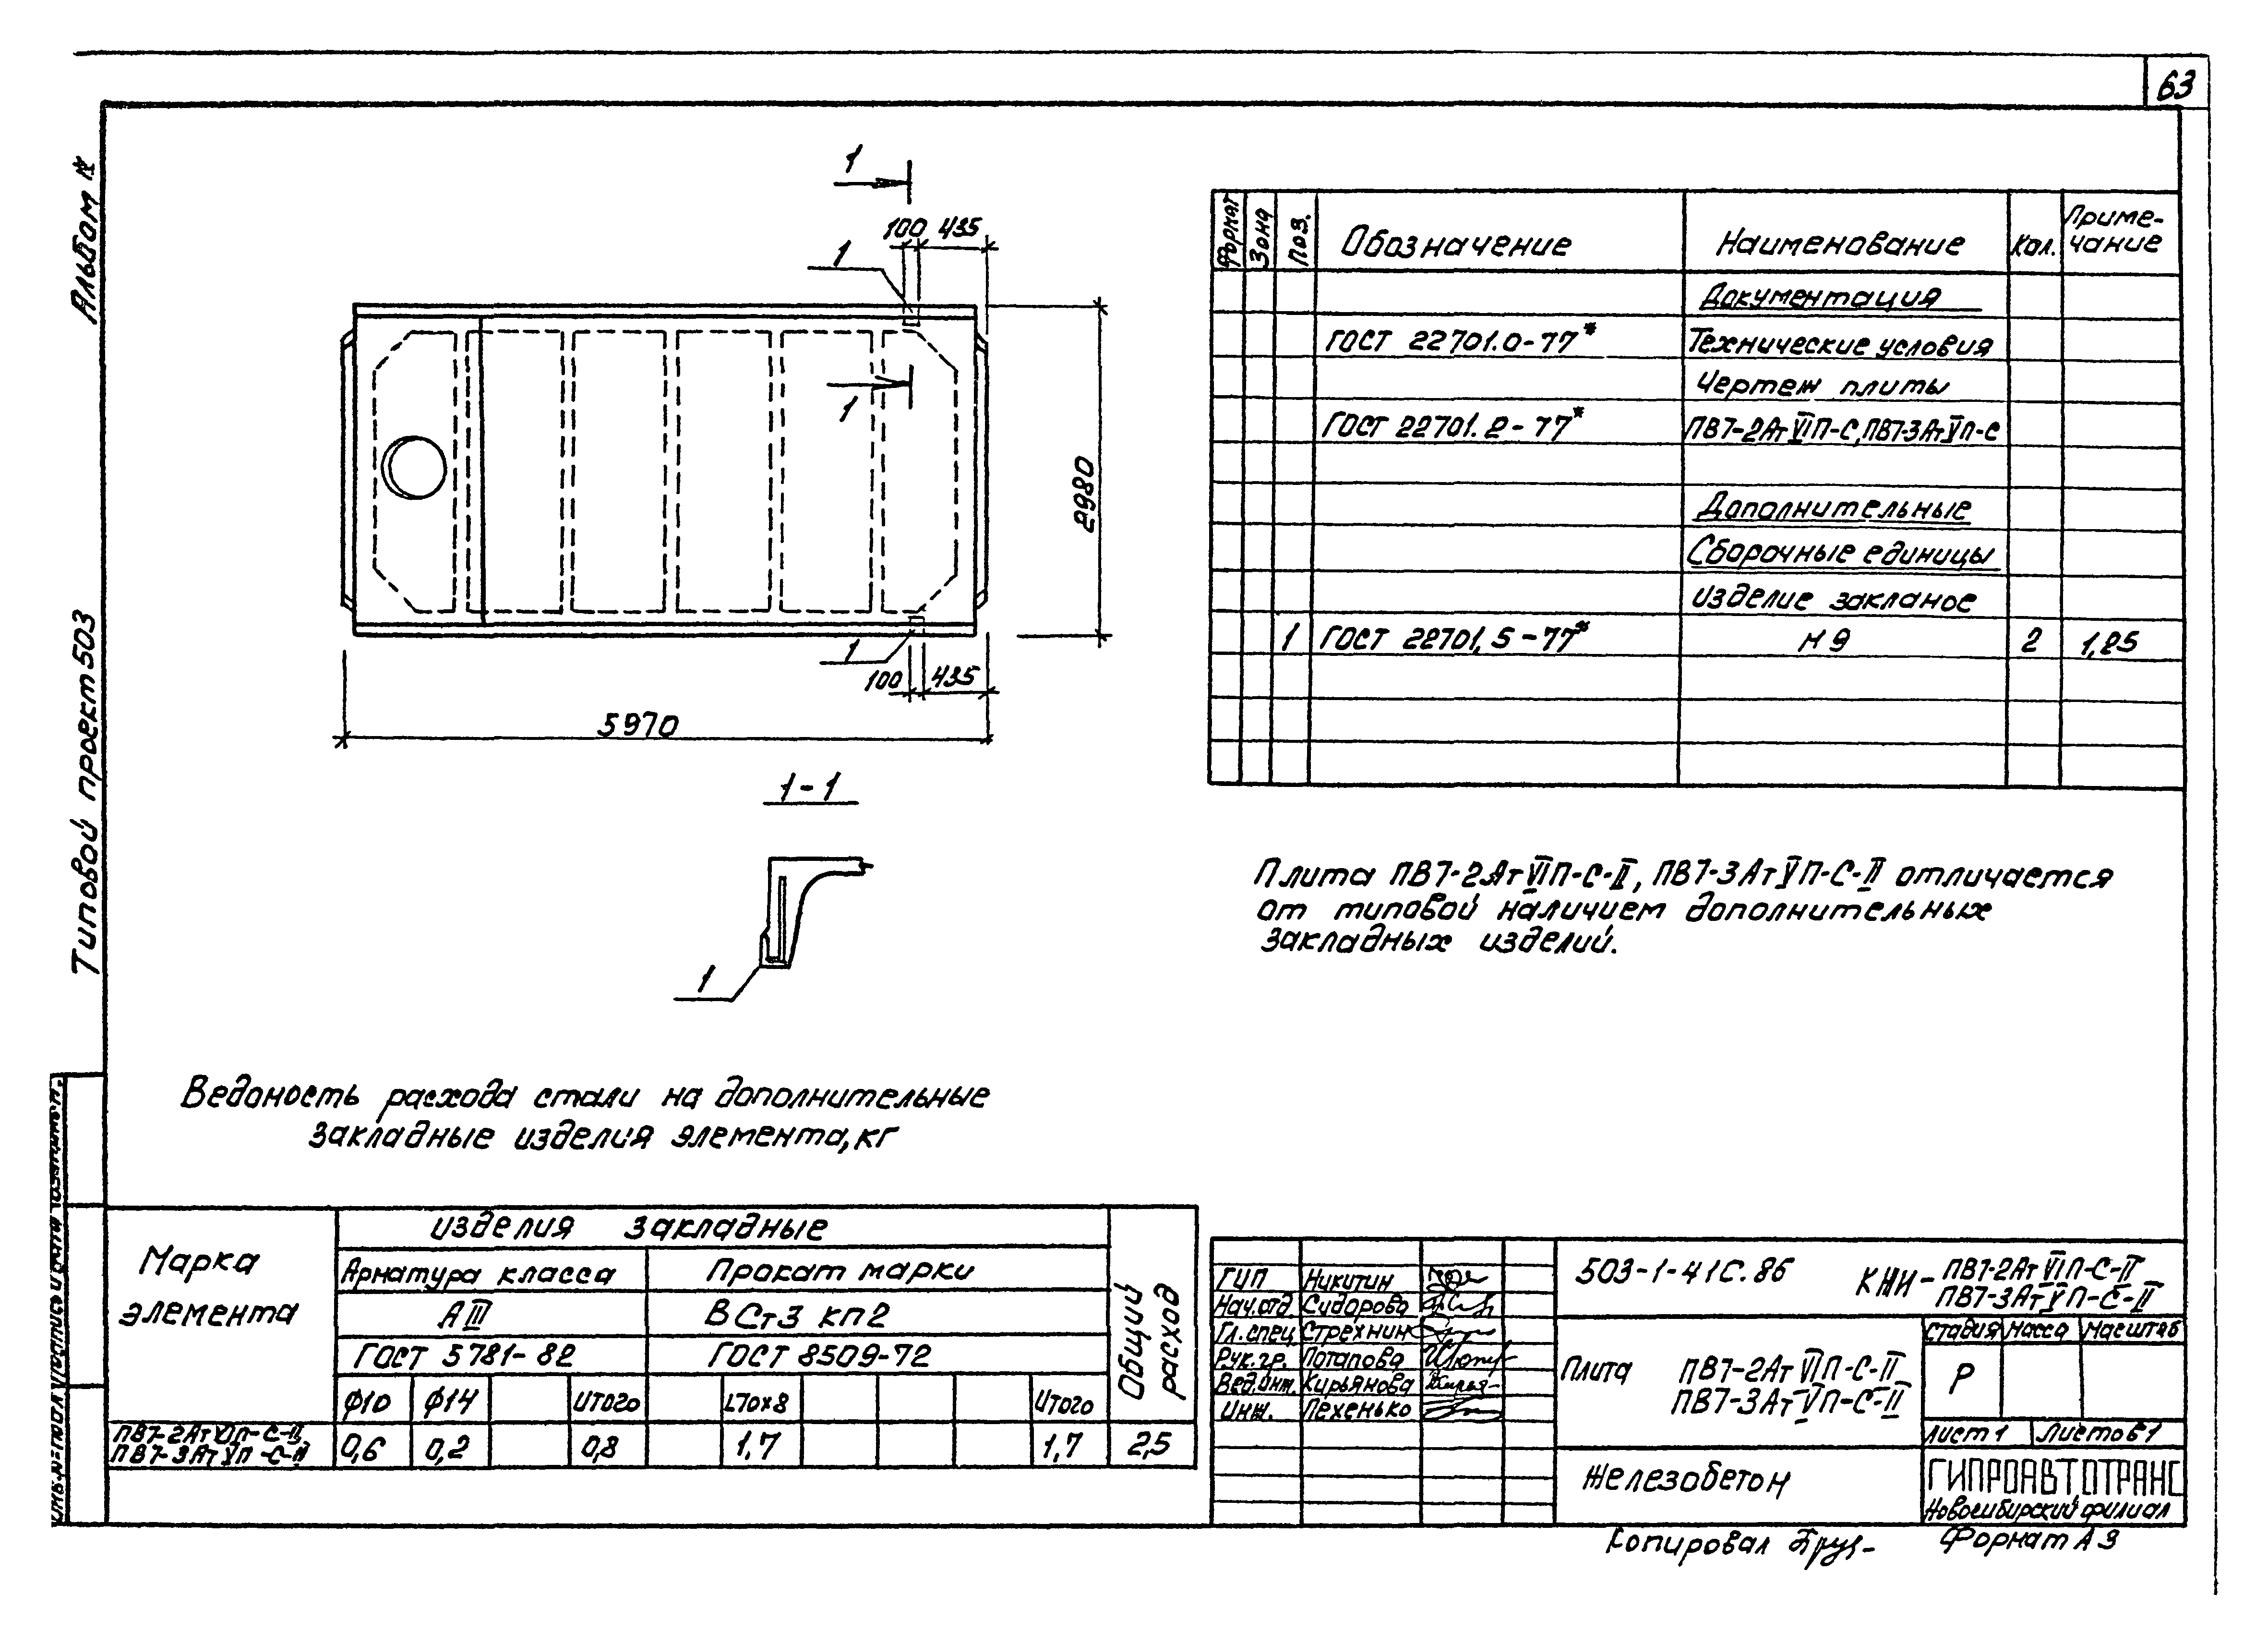 63
Альбом IV
Типовой проект 503
1
100 435
1
1
2980
1
100 435
5970
1-1
1
Формат Зона Поз. Обозначение Наименование Кол. Приме-
чание
Документация
ГОСТ 22701.0-77* Технические условия
Чертеж плиты
ГОСТ 22701.2-77* ПВ7-2АтVIП-С, ПВ7-3АтVП-С
Дополнительные
Сборочные единицы
изделие закланое
1 ГОСТ 22701.5-77* М9 2 1,25
Плита ПВ7-2АтVIП-С-II, ПВ7-3АтVП-С-II отличается
от типовой наличием дополнительных
закладных изделий.
Ведомость расхода стали на дополнительные
закладные изделия элемента, кг
Марка
элемента
изделия закладные
Общий
расход
Арматура класса Прокат марки
АIII ВСт3 кп2
ГОСТ 5781-82 ГОСТ 8509-72
ф10 ф14 Итого L70х8 Итого
ПВ7-2АтVIП-С-II,
ПВ7-3АтVП-С-II
0,6 0,2 0,8 1,7 1,7 2,5
ГИП Никитин
Нач.отд. Сидорова
Гл.спец. Стрехнин
Рук.гр. Потапова
Вед.инж. Кирьянова
Инж. Лехенько
503-1-41С.86 КЖИ-ПВ7-2АтVIП-С-II
ПВ7-3АтVП-С-II
Плита ПВ7-2АтVIП-С-II
ПВ7-3АтVП-С-II
Стадия Масса Масштаб
Р
Лист 1 Листов 1
Железобетон
ГИПРОАВТОТРАНС
Новосибирский филиал
Копировал
Формат А3